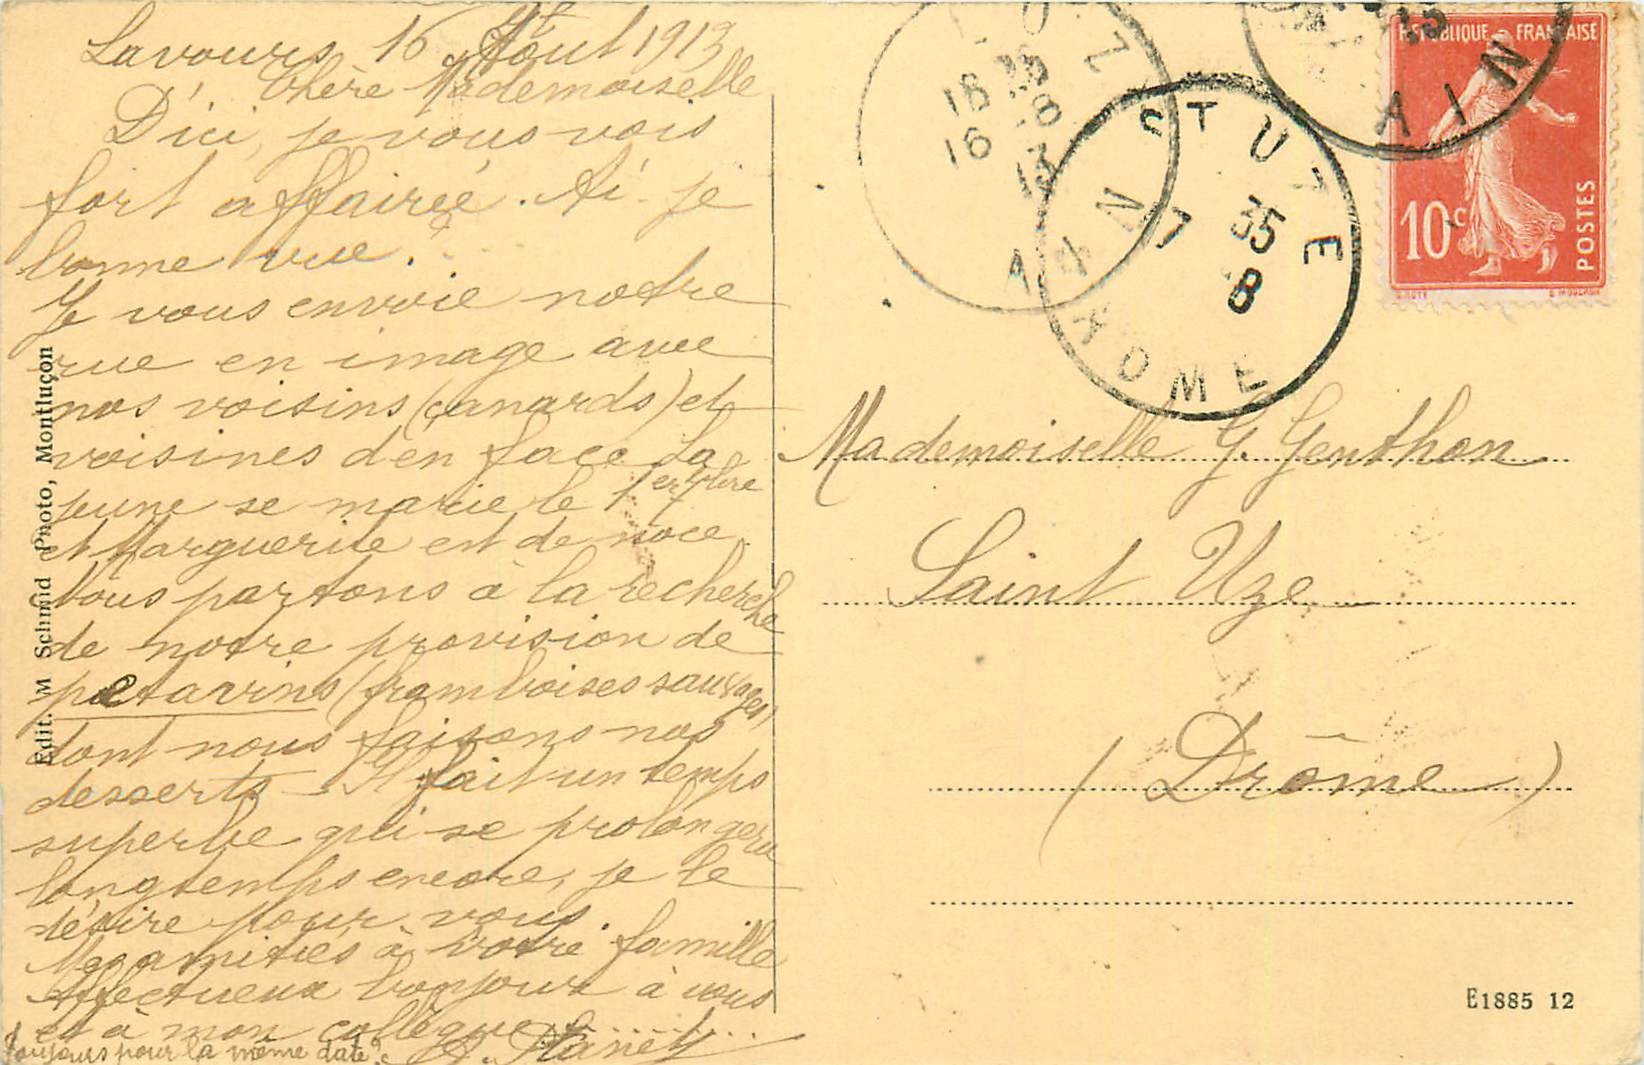 Lavours 16 Août 1913
Chère Mademoiselle
D'ici, je vous vois
fort affairée. Ai-je
bonne vue.
Je vous envoie notre
rue en image avec
nos voisins (canards) et
voisines d'en face. La
jeune se marie le 1er 7bre
et Marguerite est de noce.
Nous partons à la recherche
de notre provision de
petavins (framboises sauvages)
dont nous faisons nos
desserts - Il fait un temps
superbe qui se prolongera
longtemps encore, je le
désire pour vous.
Mes amitiés à votre famille
Affectueux bonjour à vous
et à mon collègue
Toujours pour la même date?
Edit. M Schmid Photo, Montluçon
16
16 -8
13
AIN
ST UZE
17 35
8
DROME
AIN
REPUBLIQUE FRANÇAISE
10c
POSTES
Mademoiselle G. Genthon
Saint Uze
(Drôme)
E1885 12